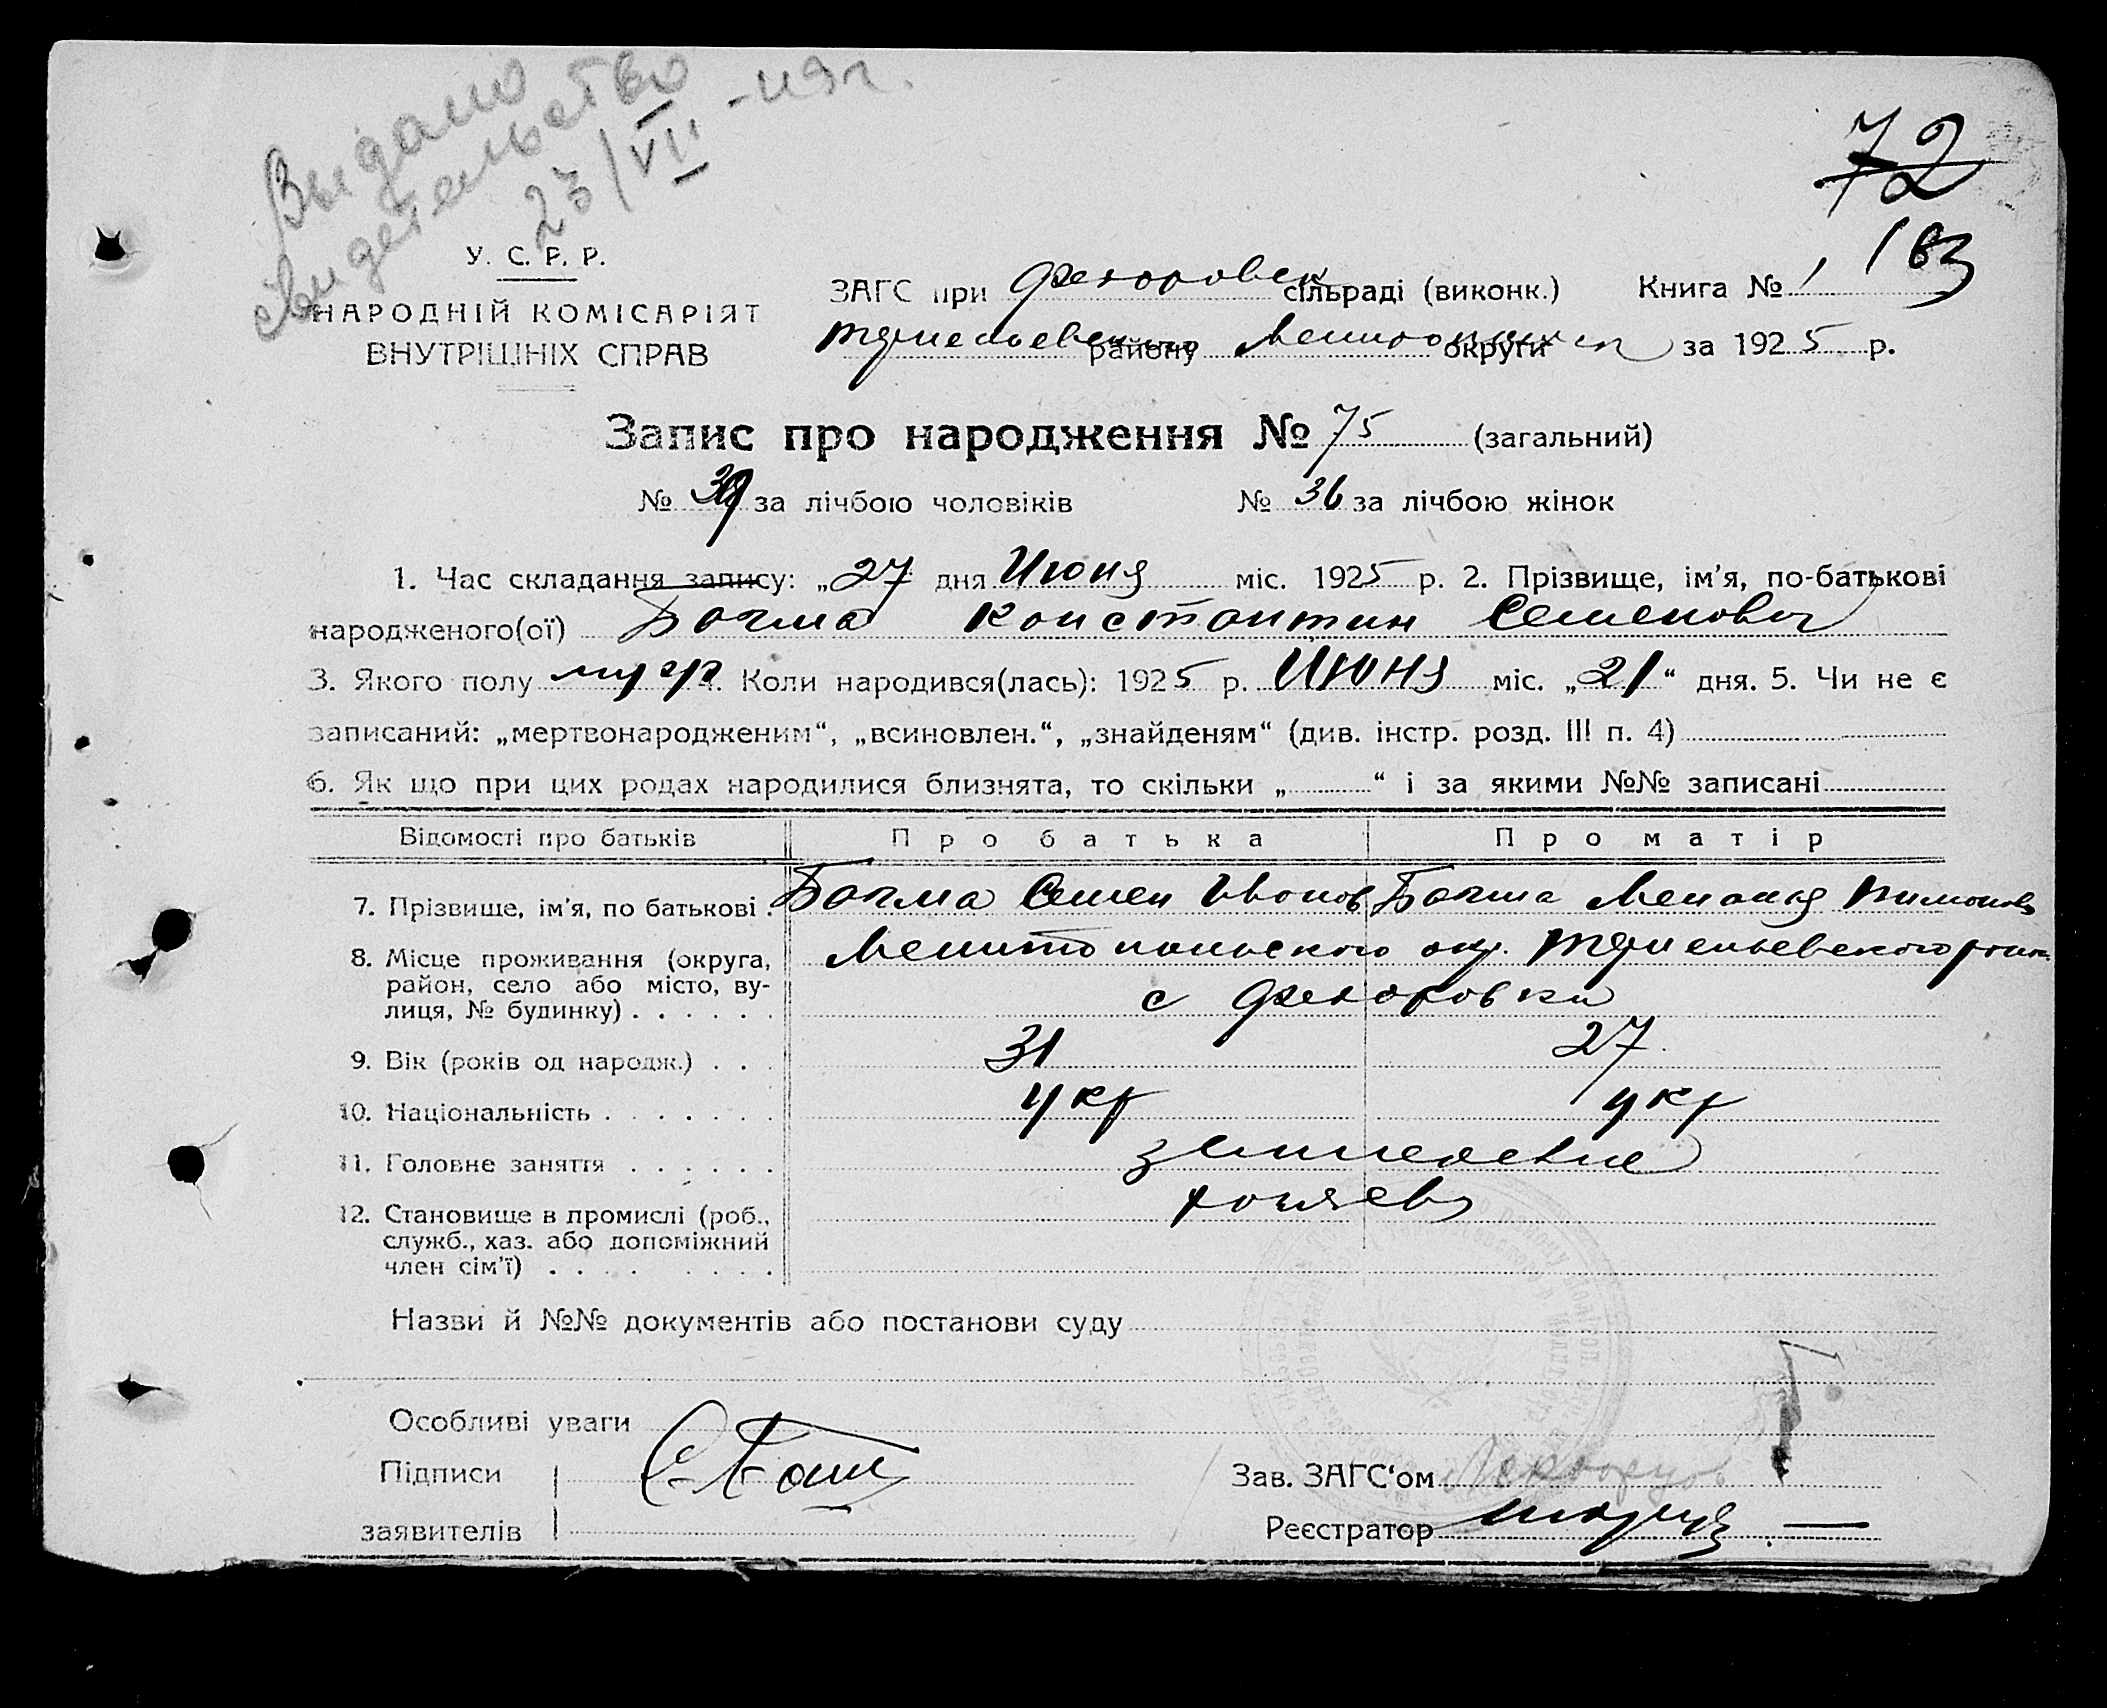 Выдано
свидетельство
23/VII -49г.
72
163
У. С. Р. Р.
НАРОДНІЙ КОМІСАРІЯТ
ВНУТРІШНІХ СПРАВ
ЗАГС при Федоровск сільраді (виконк.) Книга № 1
району округи за 1925 р.
Запис про народження № 75 (загальний)
№ 39 за лічбою чоловіків № 36 за лічбою жінок
1. Час складання запису: „27 дня Июня міс. 1925 р. 2. Прізвище, ім'я, по-батькові
народженого(ої) Бочма Константин Семенович
3. Якого полу муж 4. Коли народився(лась): 1925 р. Июня міс. „21“ дня. 5. Чи не є
записаний: „мертвонародженим“, „всиновлен.“, „знайденям“ (див. інстр. розд. III п. 4)
6. Як що при цих родах народилися близнята, то скільки „ “ і за якими №№ записані
Відомості про батьків Про батька Про матір
7. Прізвище, ім'я, по батькові . Бочма Семен Иванов Бочма Мелания
8. Місце проживання (округа, район, село або місто, вулиця, № будинку) . . . . . . Мелитопольского окр.
с Федоровки
9. Вік (років од народж.) . . . 31 27
10. Національність . . . . . . . укр укр
11. Головне заняття . . . . . . земледелие
12. Становище в промислі (роб., служб., хаз. або допоміжний член сім'ї) . . . . . . . . хозяев
Назви й №№ документів або постанови суду
Особливі уваги
Підписи
заявителів
Зав. ЗАГС'ом
Реєстратор